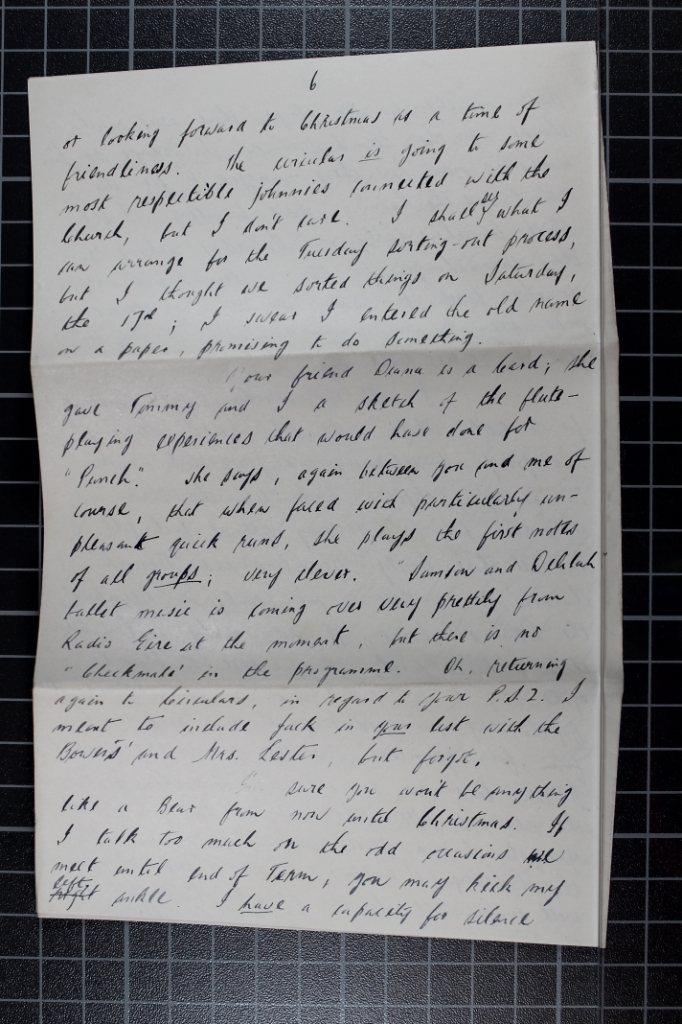 6
or looking forward to Christmas as a time of
friendliness. The circular is going to some
most respectible johnnies connected with the
Church, but I don't care. I shall see what I
can arrange for the Tuesday sorting-out process,
but I thought we sorted things on Saturday,
the 17th; I swear I entered the old name
on a paper, promising to do something.
Your friend Diana is a card; she
gave Timmy and I a sketch of the flute-
playing experiences that would have done for
"Punch". She says, again between you and me of
course, that when faced with particularly un-
pleasant quick runs, she plays the first notes
of all groups; very clever. "Samson and Delilah"
ballet music is coming over very prettily from
Radio Eire at the moment, but there is no
"Checkmate" in the programme. Oh, returning
again to Circulars, in regard to your P.S.2. I
meant to include Jack in your list with the
Bowers' and Mrs. Lester, but forgot.
I'm sure you won't be anything
like a Bear from now until Christmas. If
I talk too much on the odd occasions we
meet until end of Term, you may kick my
left
right ankle. I have a capacity for silence